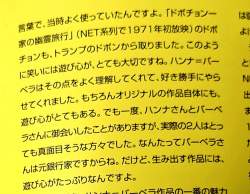 言葉で、当時よく使っていたんですよ。「ドボチョン一
家の幽霊旅行」(NET系列で1971年初放映)のドボチ
ョンも、トランプのドボンから取りました。このよう
に笑いには遊び心が、とても大切ですね。ハンナ＝バー
ベラはその点をよく理解してくれて、好き勝手にやら
せてくれました。もちろんオリジナルの作品自体にも、
遊び心がとてもある。でも一度、ハンナさんとバーベ
ラさんに御会いしたことがありますが、実際の2人はと
っても真面目そうな方々でした。なんたってバーベラさ
んは元銀行家ですからね。だけど、生み出す作品には、
遊び心がたっぷりなんですよ。
＝バーベラ作品の一番の魅力